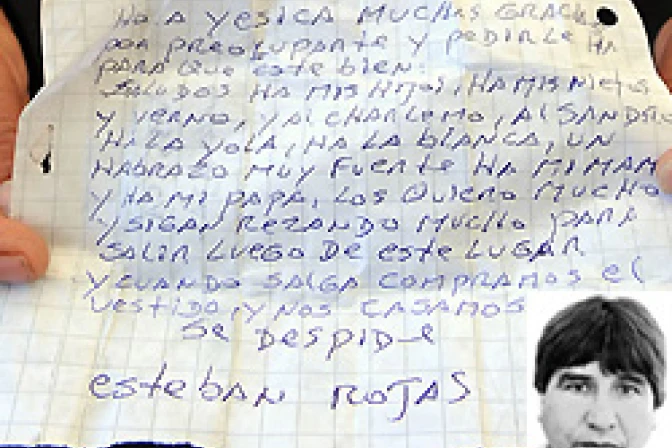 HOLA YESICA MUCHAS GRACI
POR PREOCUPARTE Y PEDIRLE HA
PARA QUE ESTE BIEN.
SALUDOS HA MIS HIJOS, HA MIS NIETOS
Y YERNO, Y AL CHARLOMO, AL SANDRO
HA LA YOLA, HA LA BLANCA, UN
HABRAZO MUY FUERTE HA MI MAM
Y HA MI PAPA, LOS QUIERO MUCHO
Y SIGAN REZANDO MUCHO PARA
SALIR LUEGO DE ESTE LUGAR
Y CUANDO SALGA COMPRAMOS EL
VESTIDO, Y NOS CASAMOS
SE DESPIDE
ESTEBAN ROJAS